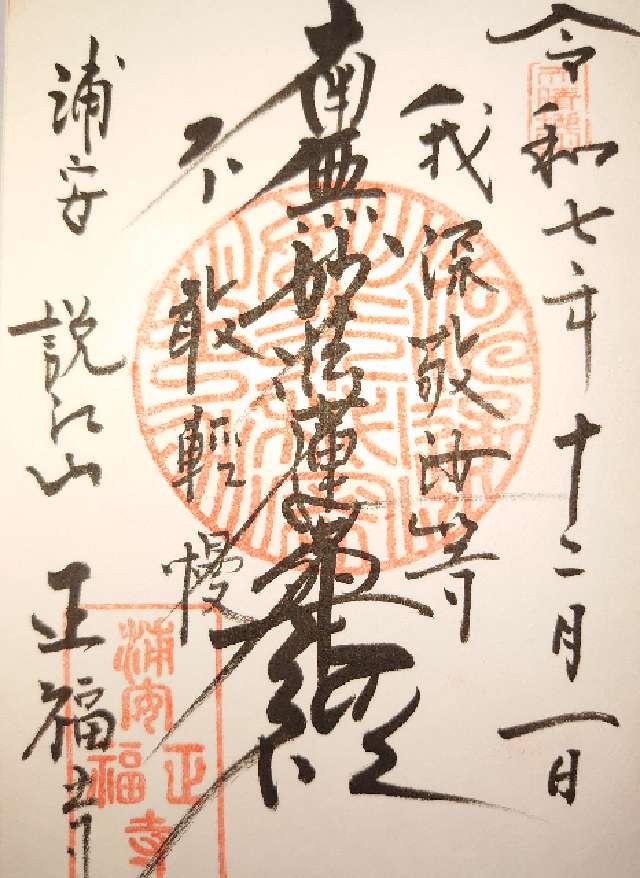 令和七年十二月一日
我深敬汝等
南無妙法蓮華経
不敢輕慢
浦安 説江山 正福寺
浦安
正福寺